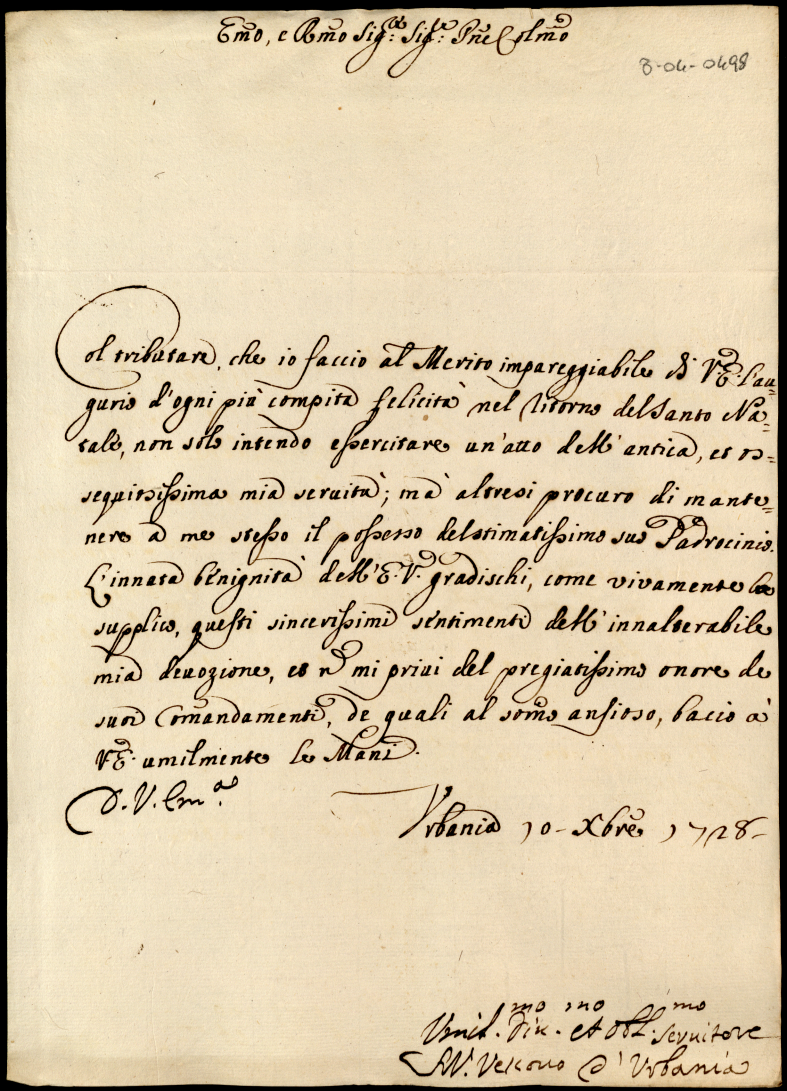 Emo, e Rmo Sig.re Sig.re Pne Colmo
8-04-0498
Col tributare, che io faccio al Merito impareggiabile di V.E. l'au=
gurio d'ogni più compita felicità nel ritorno del Santo Na=
tale, non solo intendo essercitare un'atto dell'antica, et os=
sequitissima mia seruitù; mà altresi procuro di mante=
nere à me stesso il possesso del stimatissimo suo Padrocinio.
L'innata benignità dell'E.V. gradischi, come vivamente la
supplico, questi sincerissimi sentimenti dell'innalterabile
mia deuozione, et nō mi priui del pregiatissimo onore de
suoi Comandamenti, de quali al somo ansioso, bacio à
V.E. umilmente le Mani.
D.V. Em.a
Vrbania 10 - Xbre 1728 -
Vmil.mo Diu.mo et Obl.mo seruitore
Vescouo d'Vrbania